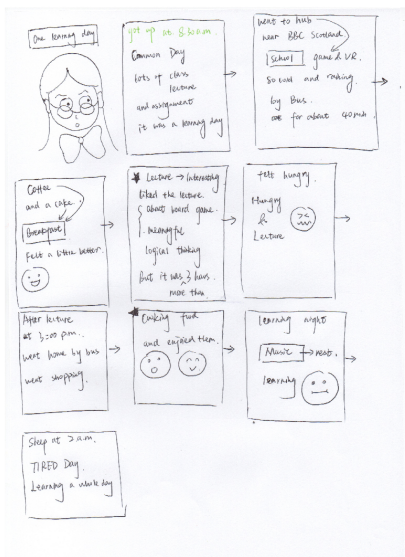 One learning day
got up at 8:30 a.m.
Common Day
lots of class
lecture
and assignment
it was a learning day
went to hub
near BBC Scotland
School game & VR.
So cold and raining
by Bus.
for about 40 mins
Coffee
and a cake.
Breakfast
Felt a little better.
Lecture → Interesting
liked the lecture.
about board game.
meaningful
logical thinking
But it was 3 hours
more than
felt hungry.
Hungry
&
Lecture
After lecture
at 3:00 p.m.
went home by bus
went shopping.
Cooking food
and enjoied them.
learning night
Music → rest.
learning
Sleep at 2 a.m.
TIRED Day.
Learning a whole day